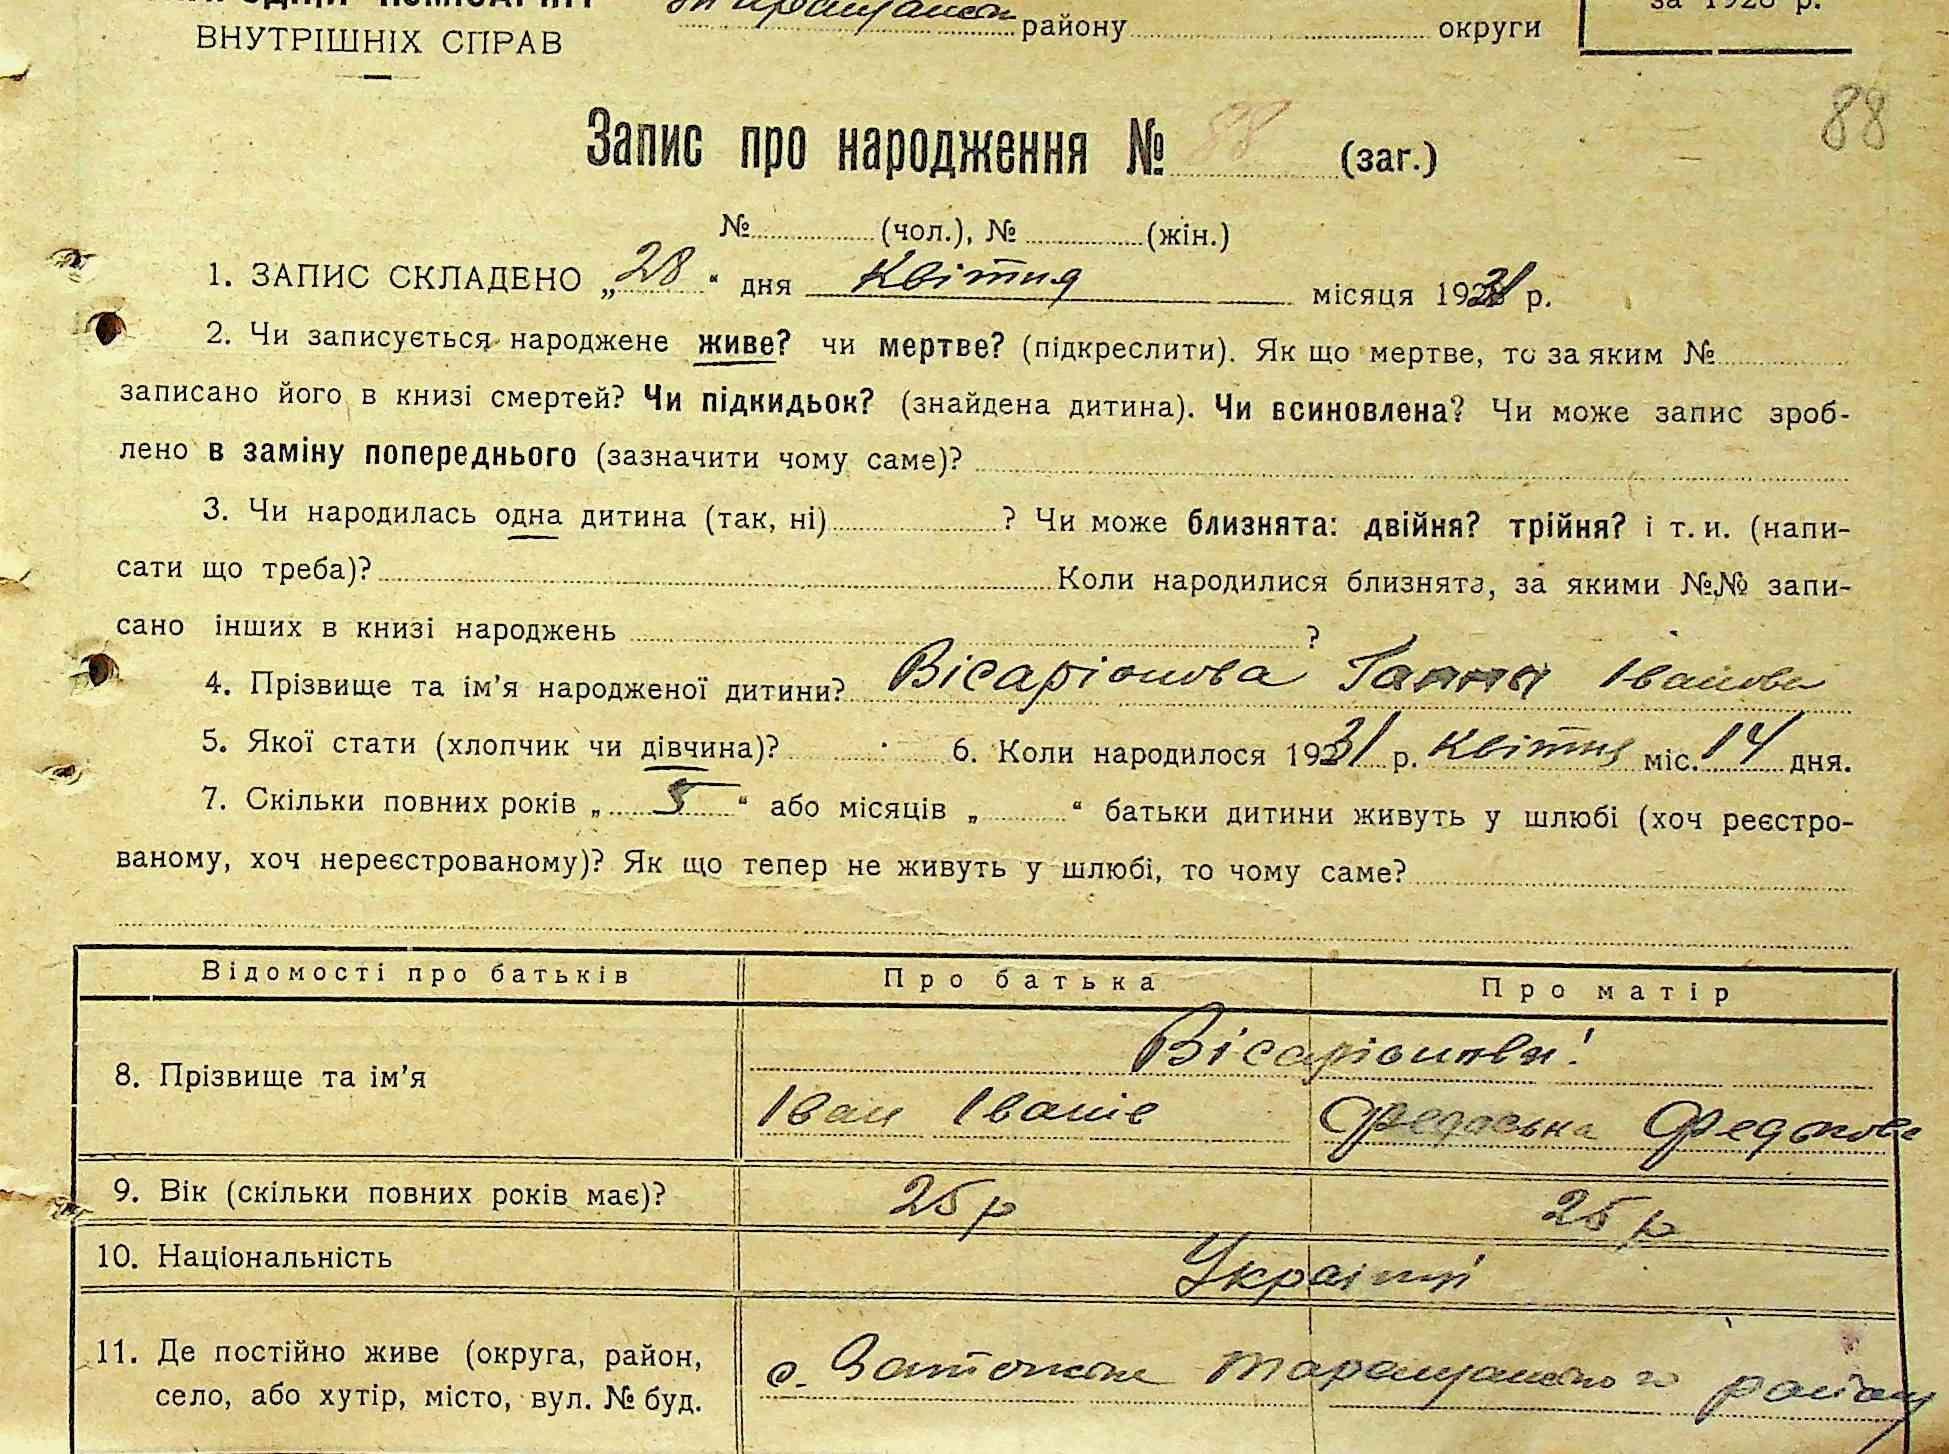 ВНУТРІШНІХ СПРАВ
району округи
за 1928 р.
88
Запис про народження № 88 (заг.)
№ (чол.), № (жін.)
1. ЗАПИС СКЛАДЕНО „28“ дня Квітня місяця 1931 р.
2. Чи записується народжене живе? чи мертве? (підкреслити). Як що мертве, то за яким №
записано його в книзі смертей? Чи підкидьок? (знайдена дитина). Чи всиновлена? Чи може запис зроб-
лено в заміну попереднього (зазначити чому саме)?
3. Чи народилась одна дитина (так, ні) ? Чи може близнята: двійня? трійня? і т. и. (напи-
сати що треба)? Коли народилися близнята, за якими №№ запи-
сано інших в книзі народжень ?
4. Прізвище та ім’я народженої дитини? Вісаріонова Ганна Іванова
5. Якої стати (хлопчик чи дівчина)? 6. Коли народилося 1931 р. Квітня міс. 14 дня.
7. Скільки повних років „5“ або місяців „ “ батьки дитини живуть у шлюбі (хоч реєстро-
ваному, хоч нереєстрованому)? Як що тепер не живуть у шлюбі, то чому саме?
Відомості про батьків Про батька Про матір
Вісаріонови
8. Прізвище та ім’я
Іван Іванів Федоська Федькова
9. Вік (скільки повних років має)? 25 р 25 р
10. Національність Українці
11. Де постійно живе (округа, район, с. Таращанського району
село, або хутір, місто, вул. № буд.